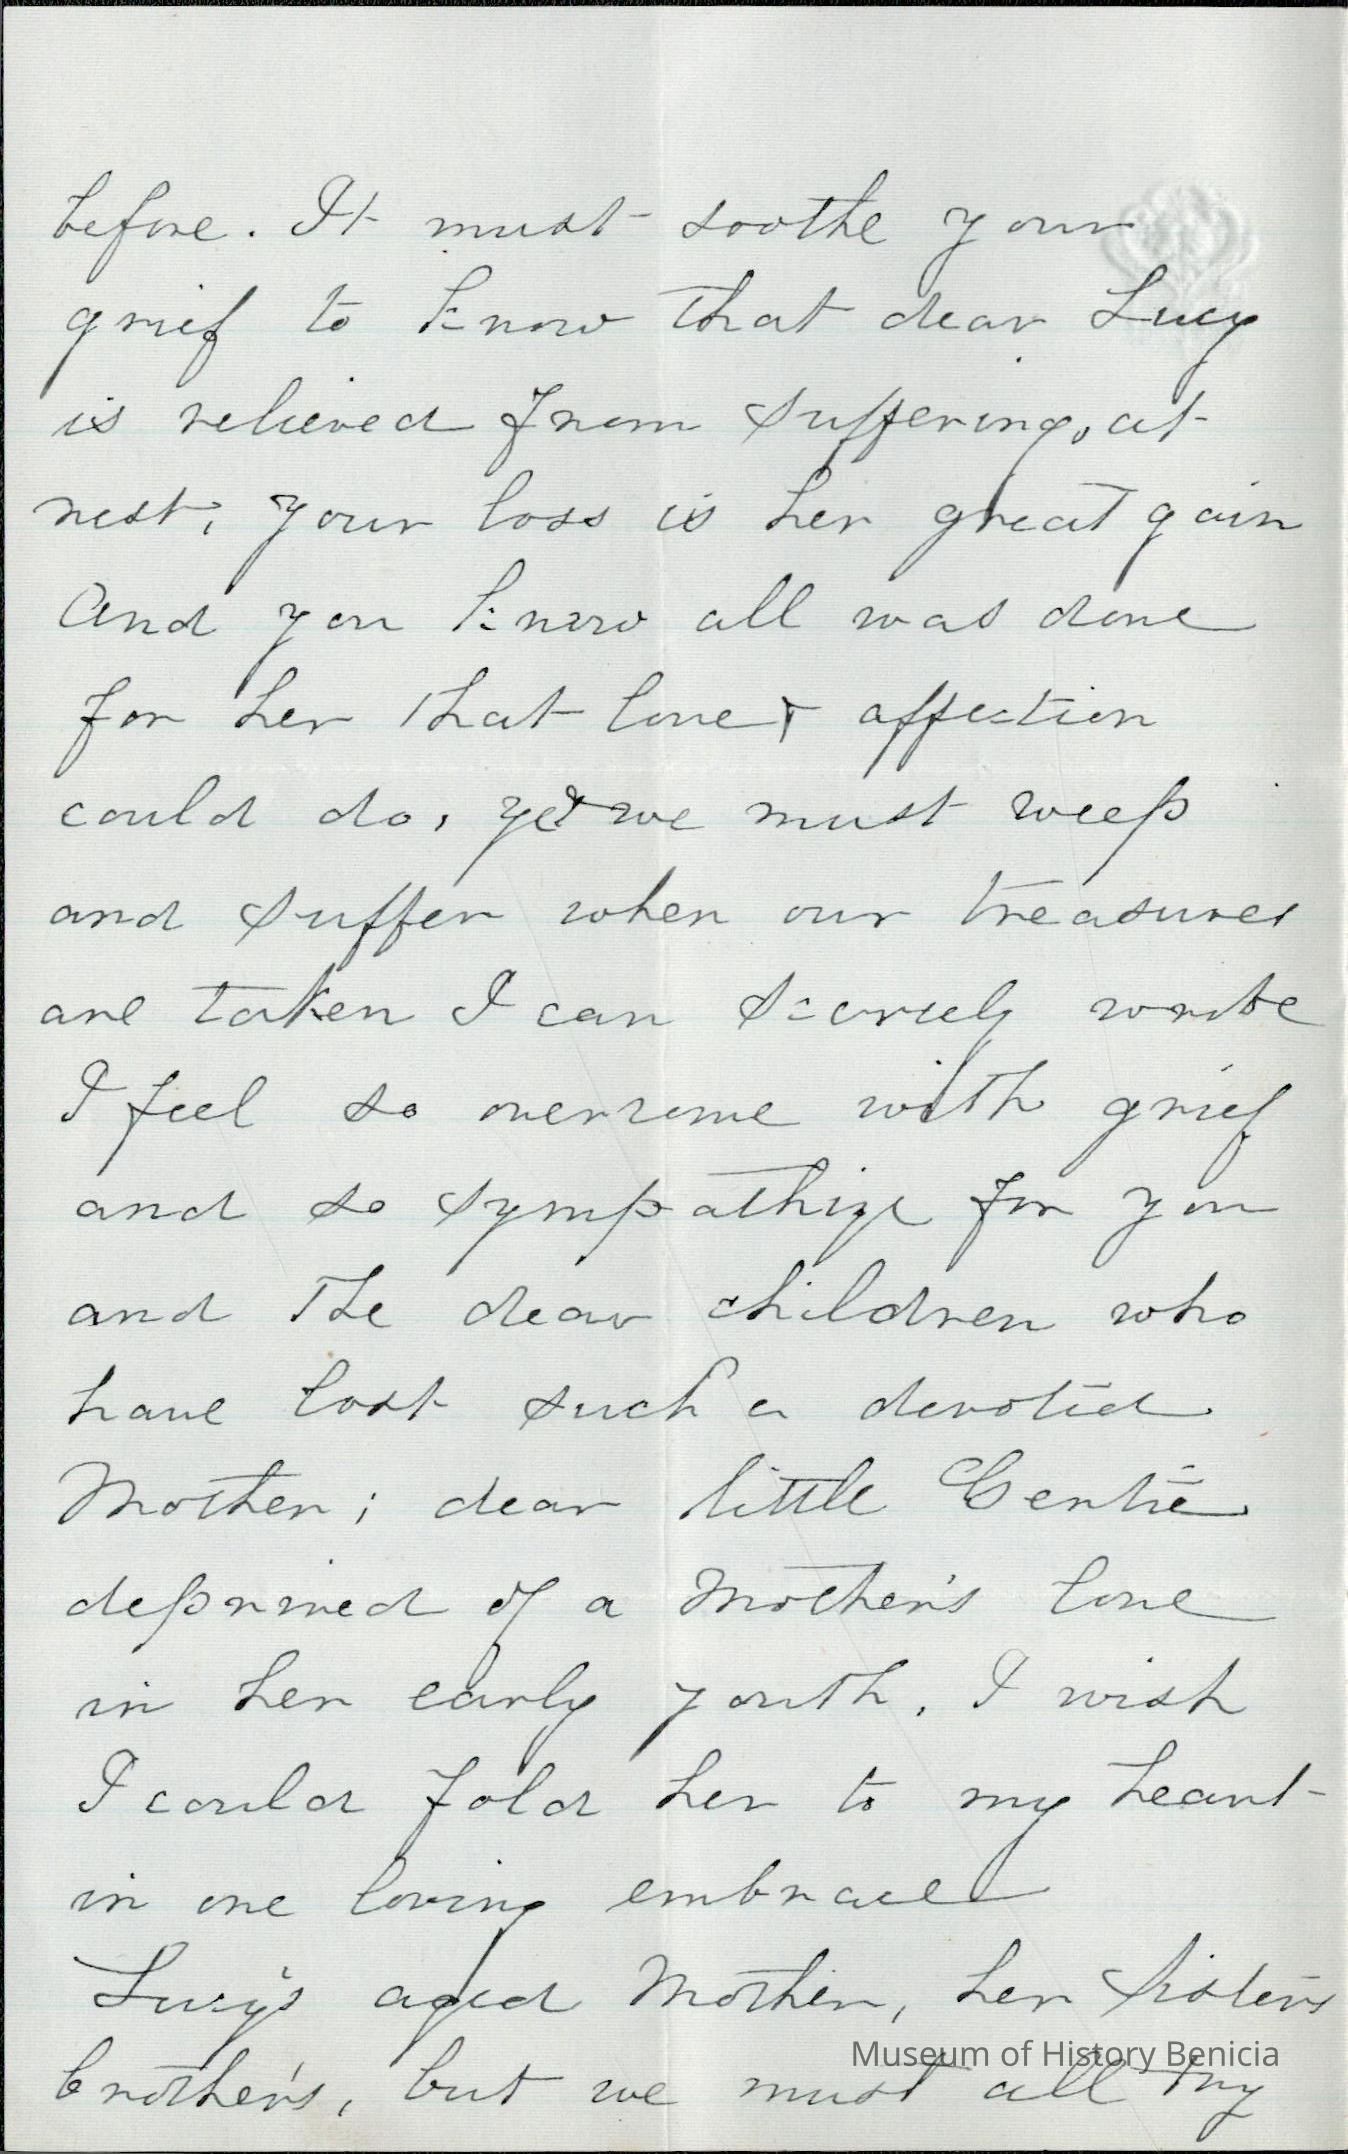 before. It must soothe your
grief to know that dear Lucy
is relieved from suffering, at
rest, your loss is her great gain
And you know all was done
for her that love & affection
could do, yet we must weep
and suffer when our treasures
are taken I can scarcely write
I feel so overcome with grief
and so sympathize for you
and the dear children who
have lost such a devoted
Mother; dear little Gertie
deprived of a Mother's love
in her early youth. I wish
I could fold her to my heart
in one loving embrace
Lucy's aged Mother, her Sisters
brother's, but we must all try
Museum of History Benicia